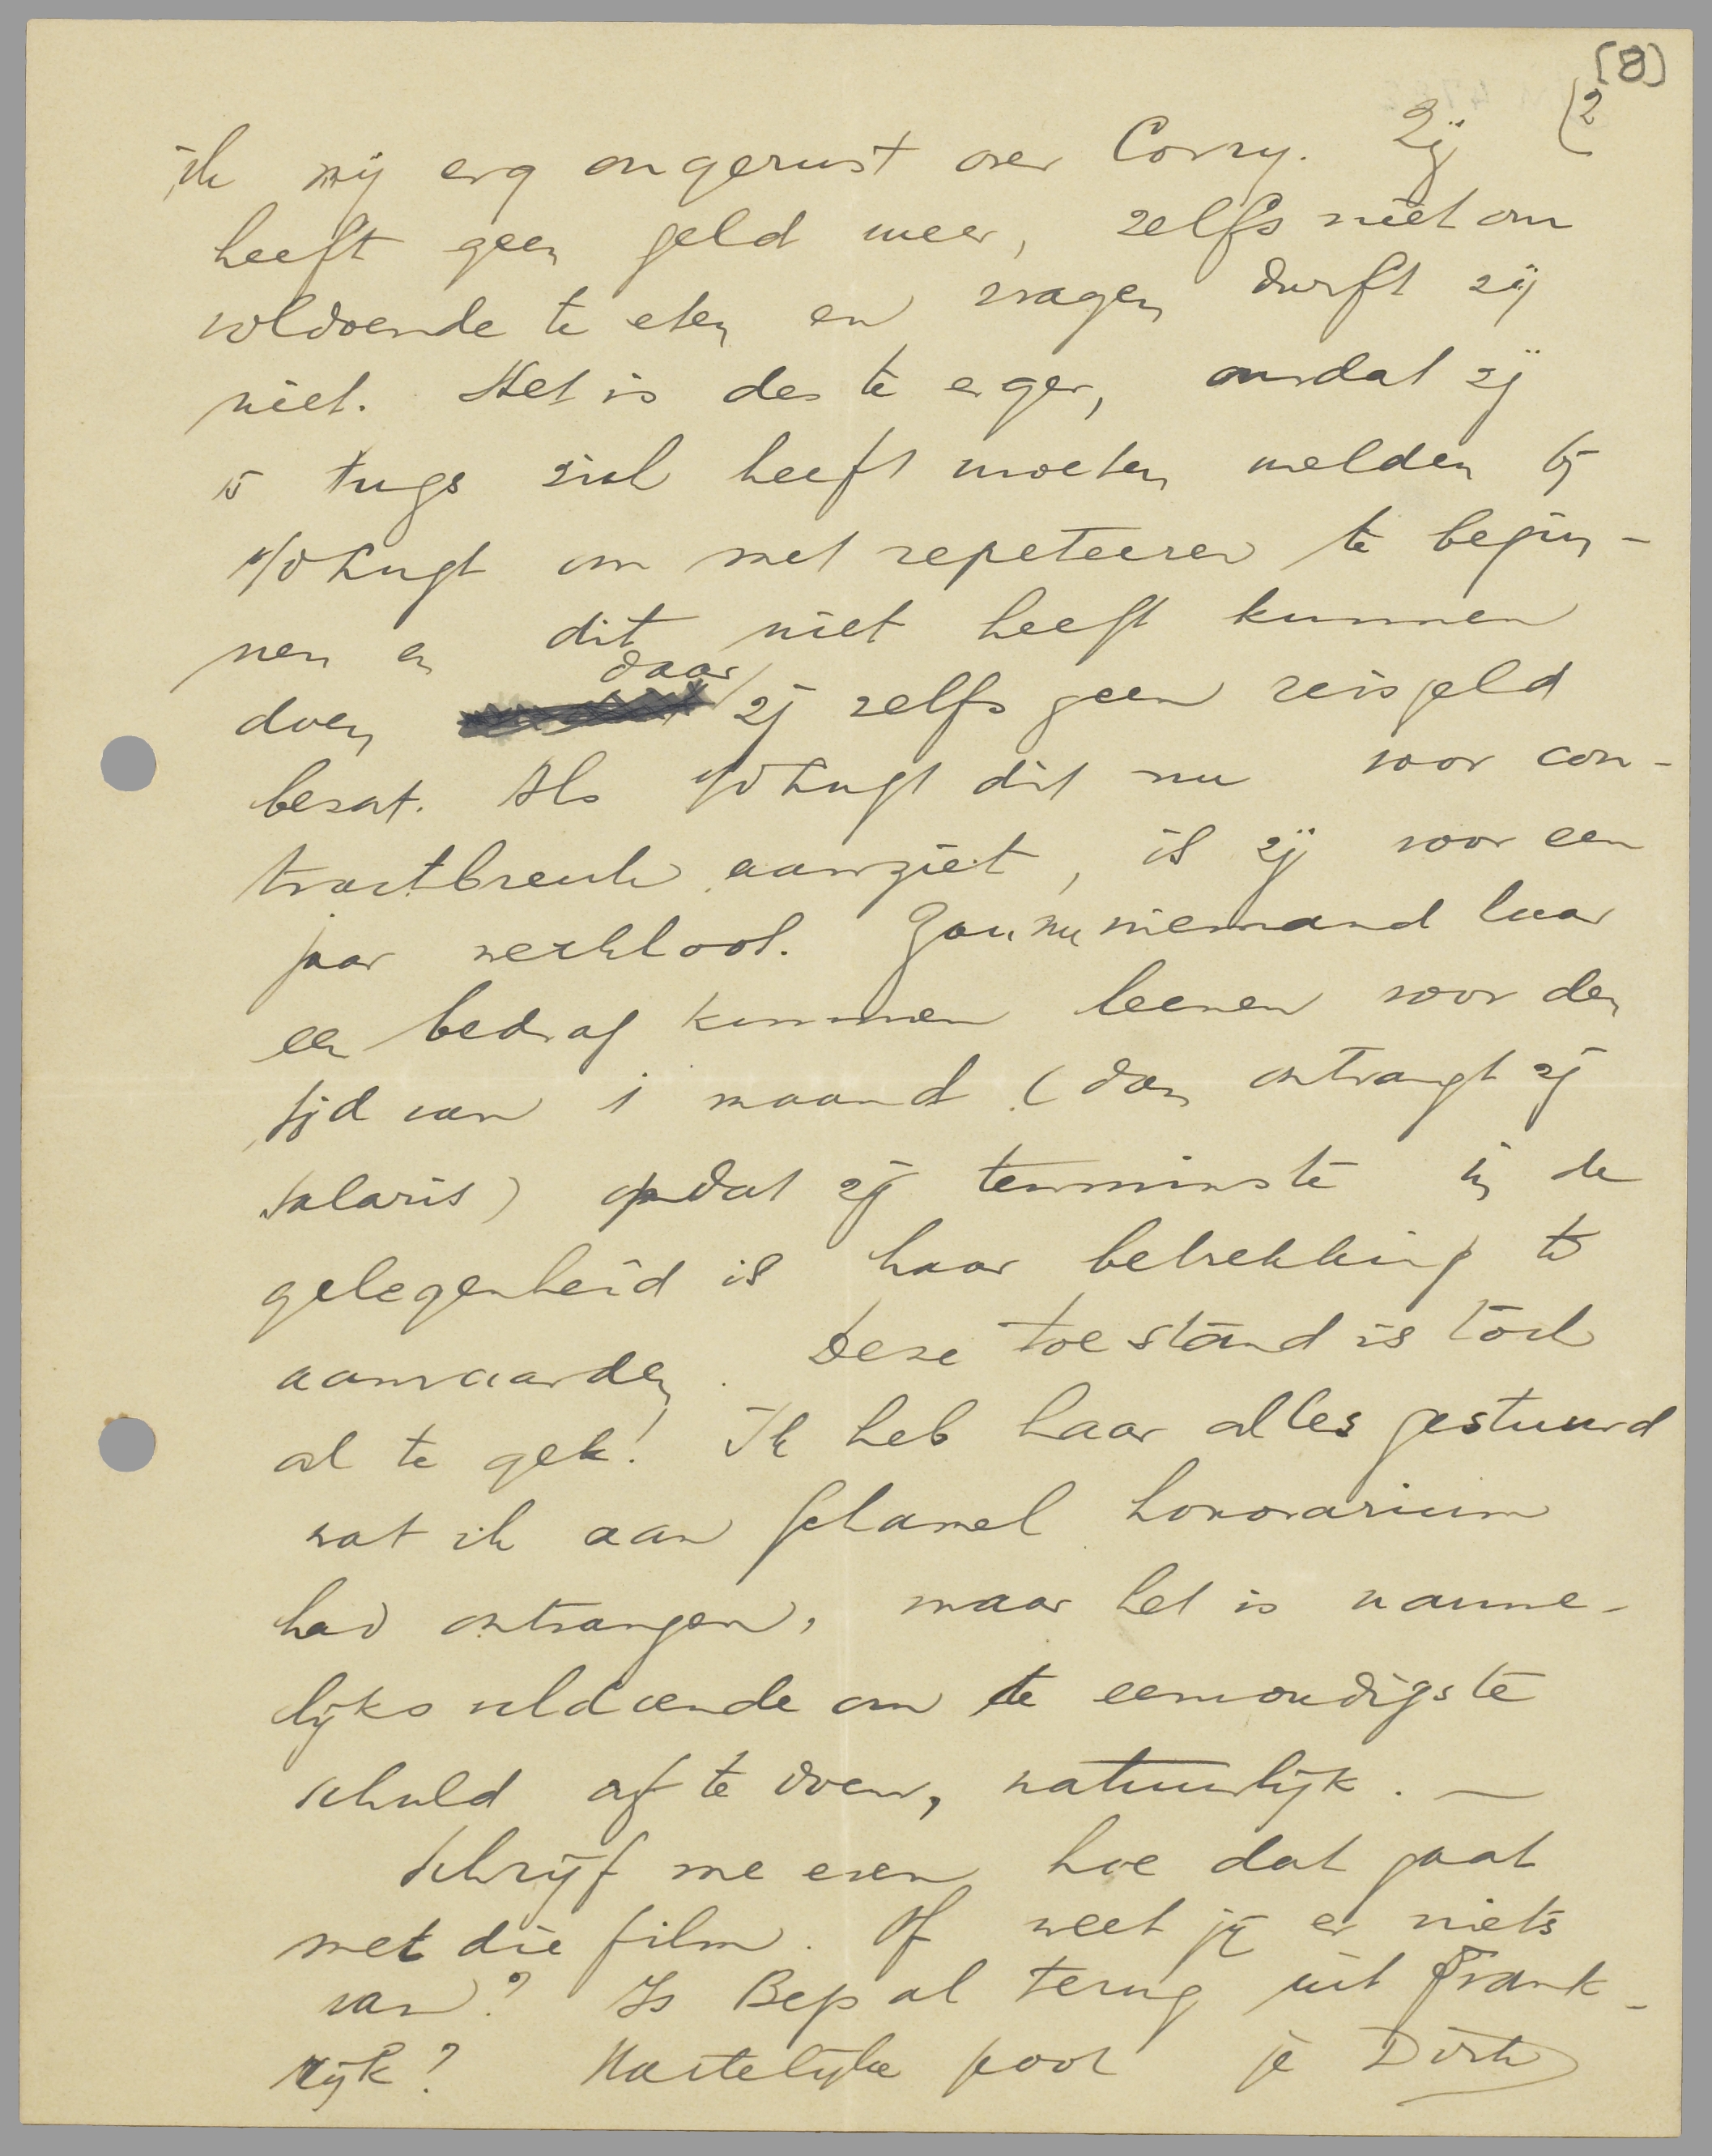 (8)
(2
ik mij erg ongerust over Corry. Zij
heeft geen geld meer, zelfs niet om
voldoende te eten en vragen durft zij
niet. Het is des te erger, omdat zij
15 Augs zich heeft moeten melden bij
v/d Lugt om met repeteeren te begin-
nen en dit niet heeft kunnen
doen daar zij zelfs geen reisgeld
bezat. Als v/d Lugt dit nu voor con-
tractbreuk aanziet, is zij voor een
jaar werkloos. Zou nu niemand haar
een bedrag kunnen leenen voor den
tijd van 1 maand (dan ontvangt zij
salaris) opdat zij tenminste in de
gelegenheid is haar betrekking te
aanvaarden. Deze toestand is toch
al te gek! Ik heb haar alles gestuurd
wat ik aan schamel honorarium
had ontvangen, maar het is nauwe-
lijks voldoende om de eenvoudigste
schuld af te doen, natuurlijk. —
Schrijf me even hoe dat gaat
met die film. Of weet jij er niets
van? Is Bep al terug uit Frank-
rijk? Hartelijke poot je Dirk